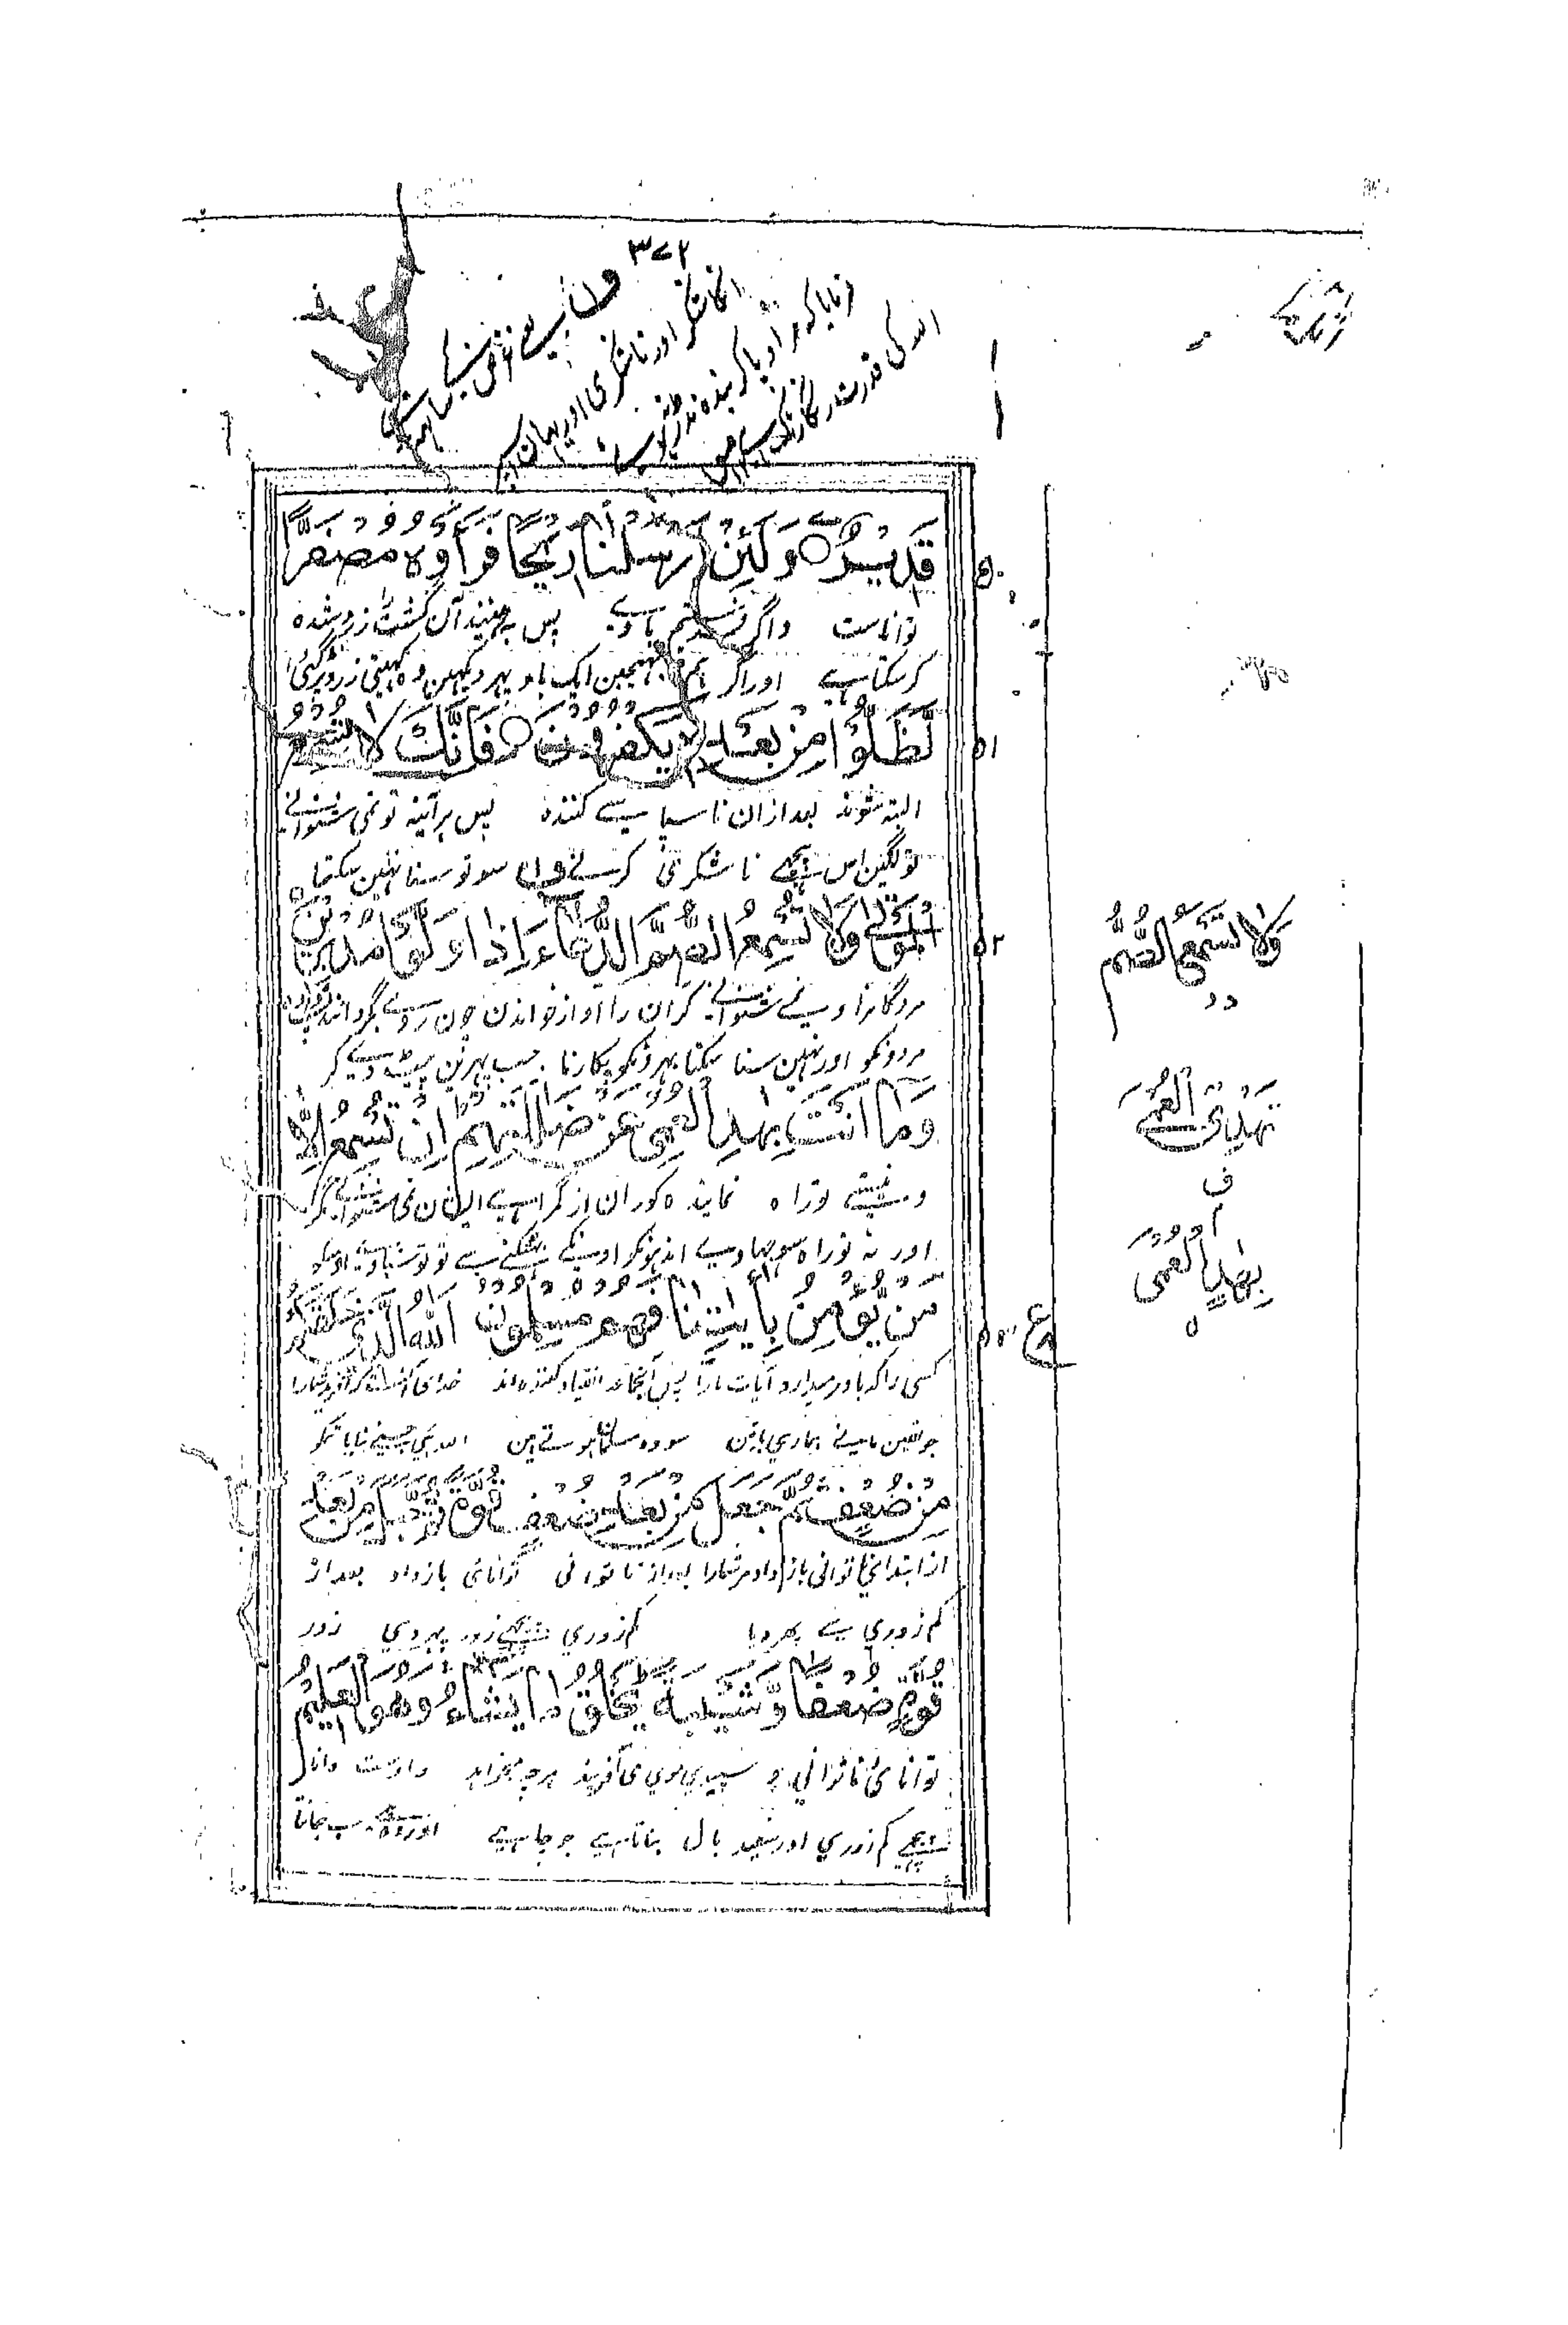 ٣٧٢
ف۱ یعنے
شکر اور ناشکری اور ایمان
فرمایا کہ مراد پا کر بندہ نڈر نہ
اللہ کی قدرت رنگارنگ ہے
قَدِيْرٌ ○ وَلَئِنْ اَرْسَلْنَا رِيْحًا فَرَاَوْهُ مُصْفَرًّا
۵۰
تواناست واگر بفرستیم بادے پس به بینند آن کشت را زرد شده
کر سکتا ہے اور اگر ہم بھیجین ایک باد پہر دیکھین وہ کھیتی زرد پڑ گئی
لَّظَلُّوْا مِنْۢ بَعْدِهٖ يَكْفُرُوْنَ ○ فَاِنَّكَ لَا تُسْمِعُ
۵۱
البته شوند بعد ازان ناسپاسے کننده پس ہر آئینہ تو نمی شنوانے
تو لگین اس پیچھے ناشکری کرنے ف۱ سو تو سنا نہین سکتا
الْمَوْتٰى وَلَا تُسْمِعُ الصُّمَّ الدُّعَآءَ اِذَا وَلَّوْا مُدْبِرِيْنَ
۵۲
مردگانرا و نمے شنوانے کران را آواز خواندن چون روے بگردانند
مردونکو اور نہین سنا سکتا بہرونکو پکارنا جب پہرین پیٹھ دے کر
وَمَآ اَنْتَ بِهٰدِ الْعُمْيِ عَنْ ضَلٰلَتِهِمْ اِنْ تُسْمِعُ اِلَّا
و نیستے تو راہ نمایندہ کوران از گمراہے ایشان نمی شنوانے مگر
اور نہ تو راہ سوجھاوے اندہونکو اونکے بھٹکنے سے تو تو سناوے اوسکو
مَنْ يُّؤْمِنُ بِاٰيٰتِنَا فَهُمْ مُّسْلِمُوْنَ اَللّٰهُ الَّذِيْ خَلَقَكُمْ
۵۳ ع
کسی را که باور میدارد آیات ما را پس آنجماعہ انقیاد کننده اند خدای آنست که آفرید شمارا
جو یقین مانے ہماری باتین سو وہ مسلمان ہوتے ہین اللہ ہی جسنے بنایا تمکو
مِّنْ ضُعْفٍ ثُمَّ جَعَلَ مِنْۢ بَعْدِ ضُعْفٍ قُوَّةً ثُمَّ جَعَلَ مِنْۢ بَعْدِ
از ابتداے ناتوانی باز داد مر شمارا بعد از ناتوانی توانائی باز داد بعد از
کم زوری سے پھر دیا کم زوری پیچھے زور پہر دی زور
قُوَّةٍ ضُعْفًا وَّشَيْبَةً يَخْلُقُ مَا يَشَآءُ وَهُوَ الْعَلِيْمُ
توانائی ناتوانی و سپیدی موی می آفریند ہرچہ میخواہد و اوست دانا
پیچھے کم زوری اور سفید بال بناتا ہے جو چاہے اور وہ ہے سب جانتا
وَلَا تَسْمَعُ الصُّمُّ
تَهْدِى الْعُمْىَ
ف
بِهٰدِ الْعُمْىِ